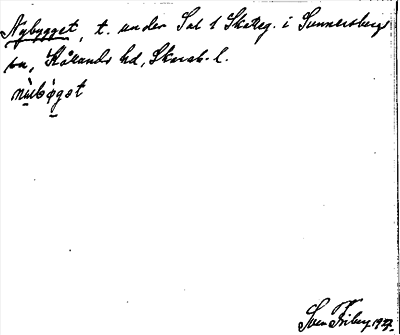 Nybygget, t. under Sal 1 Skatteg. i Sunnersbergs
sn, Kållands hd, Skarab. l.
nùb̀ǫgət
Sven Friberg 1927.